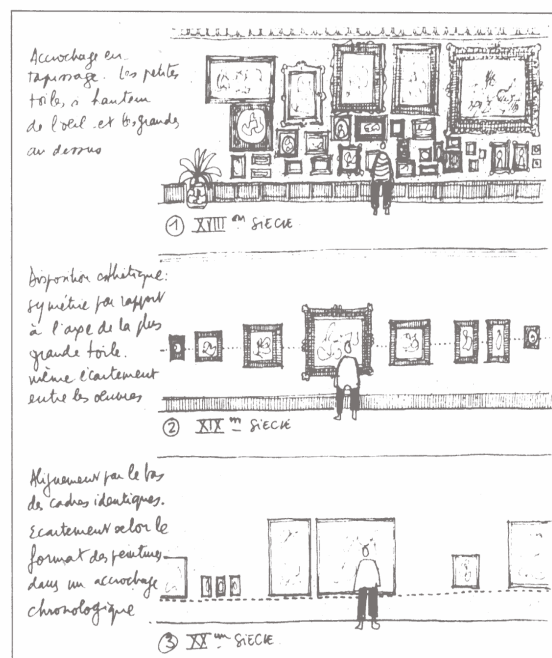 Accrochage en
tapissage. les petites
toiles à hauteur
de l'oeil et les grandes
au dessus
① XVIII em SIECLE
Disposition esthétique:
symétrie par rapport
à l'axe de la plus
grande toile.
même écartement
entre les oeuvres
② XIX em SIECLE
Alignement par le bas
des cadres identiques.
Ecartement selon le
format des peintures
dans un accrochage
chronologique
③ XX em SIECLE